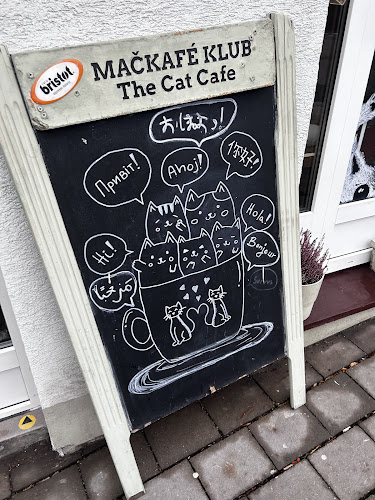 bristot
MAČKAFÉ KLUB
The Cat Cafe
おはよう!
Привіт!
Ahoj!
你好!
Hola!
Hi!
Bonjour
مرحبا